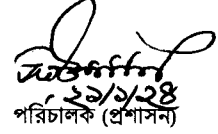 ২১/১/২৪
পরিচালক (প্রশাসন)